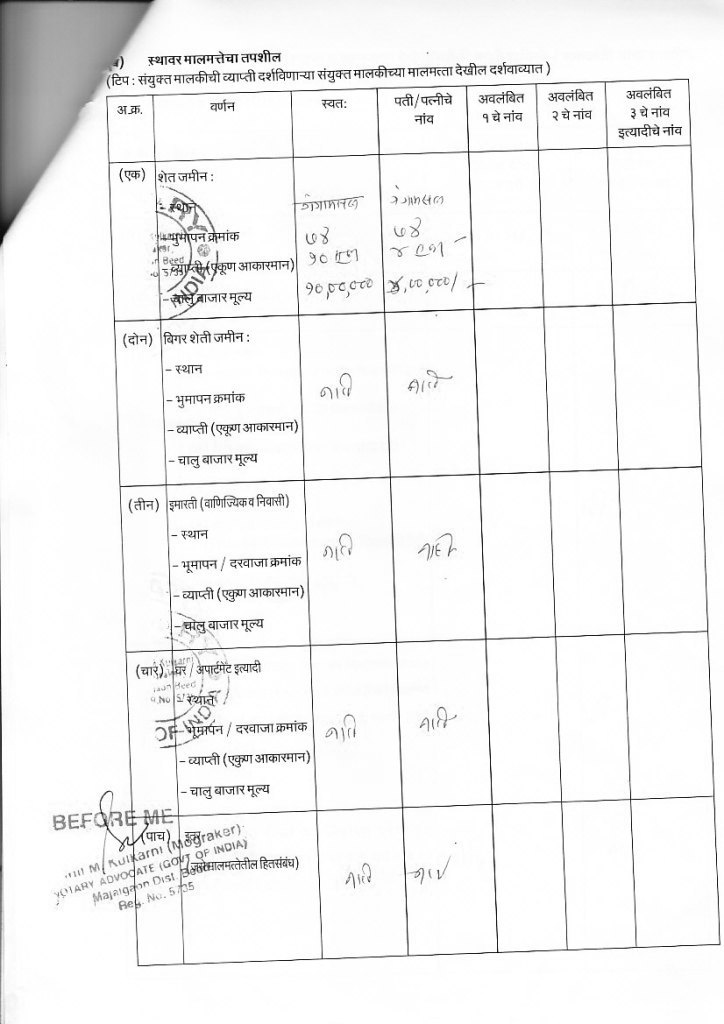 स्थावर मालमत्तेचा तपशील
(टिप : संयुक्त मालकीची व्याप्ती दर्शविणाऱ्या संयुक्त मालकीच्या मालमत्ता देखील दर्शवाव्यात )
अ.क्र. वर्णन स्वत: पती/पत्नीचे नांव अवलंबित १ चे नांव अवलंबित २ चे नांव अवलंबित ३ चे नांव इत्यादीचे नांव
(एक) शेत जमीन :
– स्थान
– भुमापन क्रमांक ७४ ७४
– व्याप्ती (एकूण आकारमान) १०
– चालु बाजार मूल्य १०,००,०००
(दोन) बिगर शेती जमीन :
– स्थान
– भुमापन क्रमांक
– व्याप्ती (एकूण आकारमान)
– चालु बाजार मूल्य
(तीन) इमारती (वाणिज्यिक व निवासी)
– स्थान
– भूमापन / दरवाजा क्रमांक
– व्याप्ती (एकुण आकारमान)
– चालु बाजार मूल्य
(चार) घर / अपार्टमेंट इत्यादी
– स्थान
– भूमापन / दरवाजा क्रमांक
– व्याप्ती (एकुण आकारमान)
– चालु बाजार मूल्य
BEFORE ME
(पाच) इतर
(जसे मालमत्तेतील हितसंबंध)
M. Kulkarni (Mograker)
NOTARY ADVOCATE (GOVT OF INDIA)
Majalgaon Dist. Beed
Reg. No. 5735